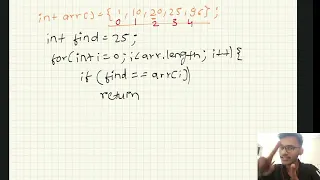 int arr[] = {1, 10, 20, 25, 96};
0 1 2 3 4
int find = 25;
for(int i = 0; i < arr.length; i++) {
if (find == arr[i])
return